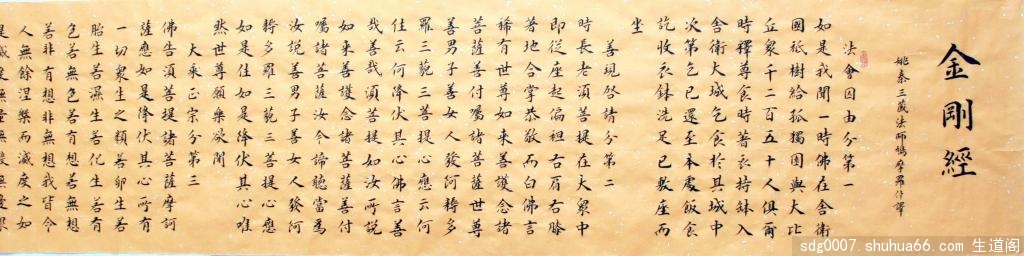 金剛經
姚秦三藏法師鳩摩羅什譯
法會因由分第一
如是我聞一時佛在舍衛
國祇樹給孤獨園與大比
丘衆千二百五十人俱爾
時釋尊食時著衣持鉢入
舍衛大城乞食於其城中
次第乞已還至本處飯食
訖收衣鉢洗足已敷座而
坐
善現啓請分第二
時長老須菩提在大衆中
即從座起偏袒右肩右膝
著地合掌恭敬而白佛言
稀有世尊如來善護念諸
菩薩善付囑諸菩薩世尊
善男子善女人發阿耨多
羅三藐三菩提心應云何
住云何降伏其心佛言善
哉善哉須菩提如汝所說
如來善護念諸菩薩善付
囑諸菩薩汝今諦聽當為
汝說善男子善女人發阿
耨多羅三藐三菩提心應
如是住如是降伏其心唯
然世尊願樂欲聞
大乘正宗分第三
佛告須菩提諸菩薩摩訶
薩應如是降伏其心所有
一切衆生之類若卵生若
胎生若濕生若化生若有
色若無色若有想若無想
若非有想非無想我皆令
入無餘涅槃而滅度之如
sdg0007.shuhua66.com 生道阁